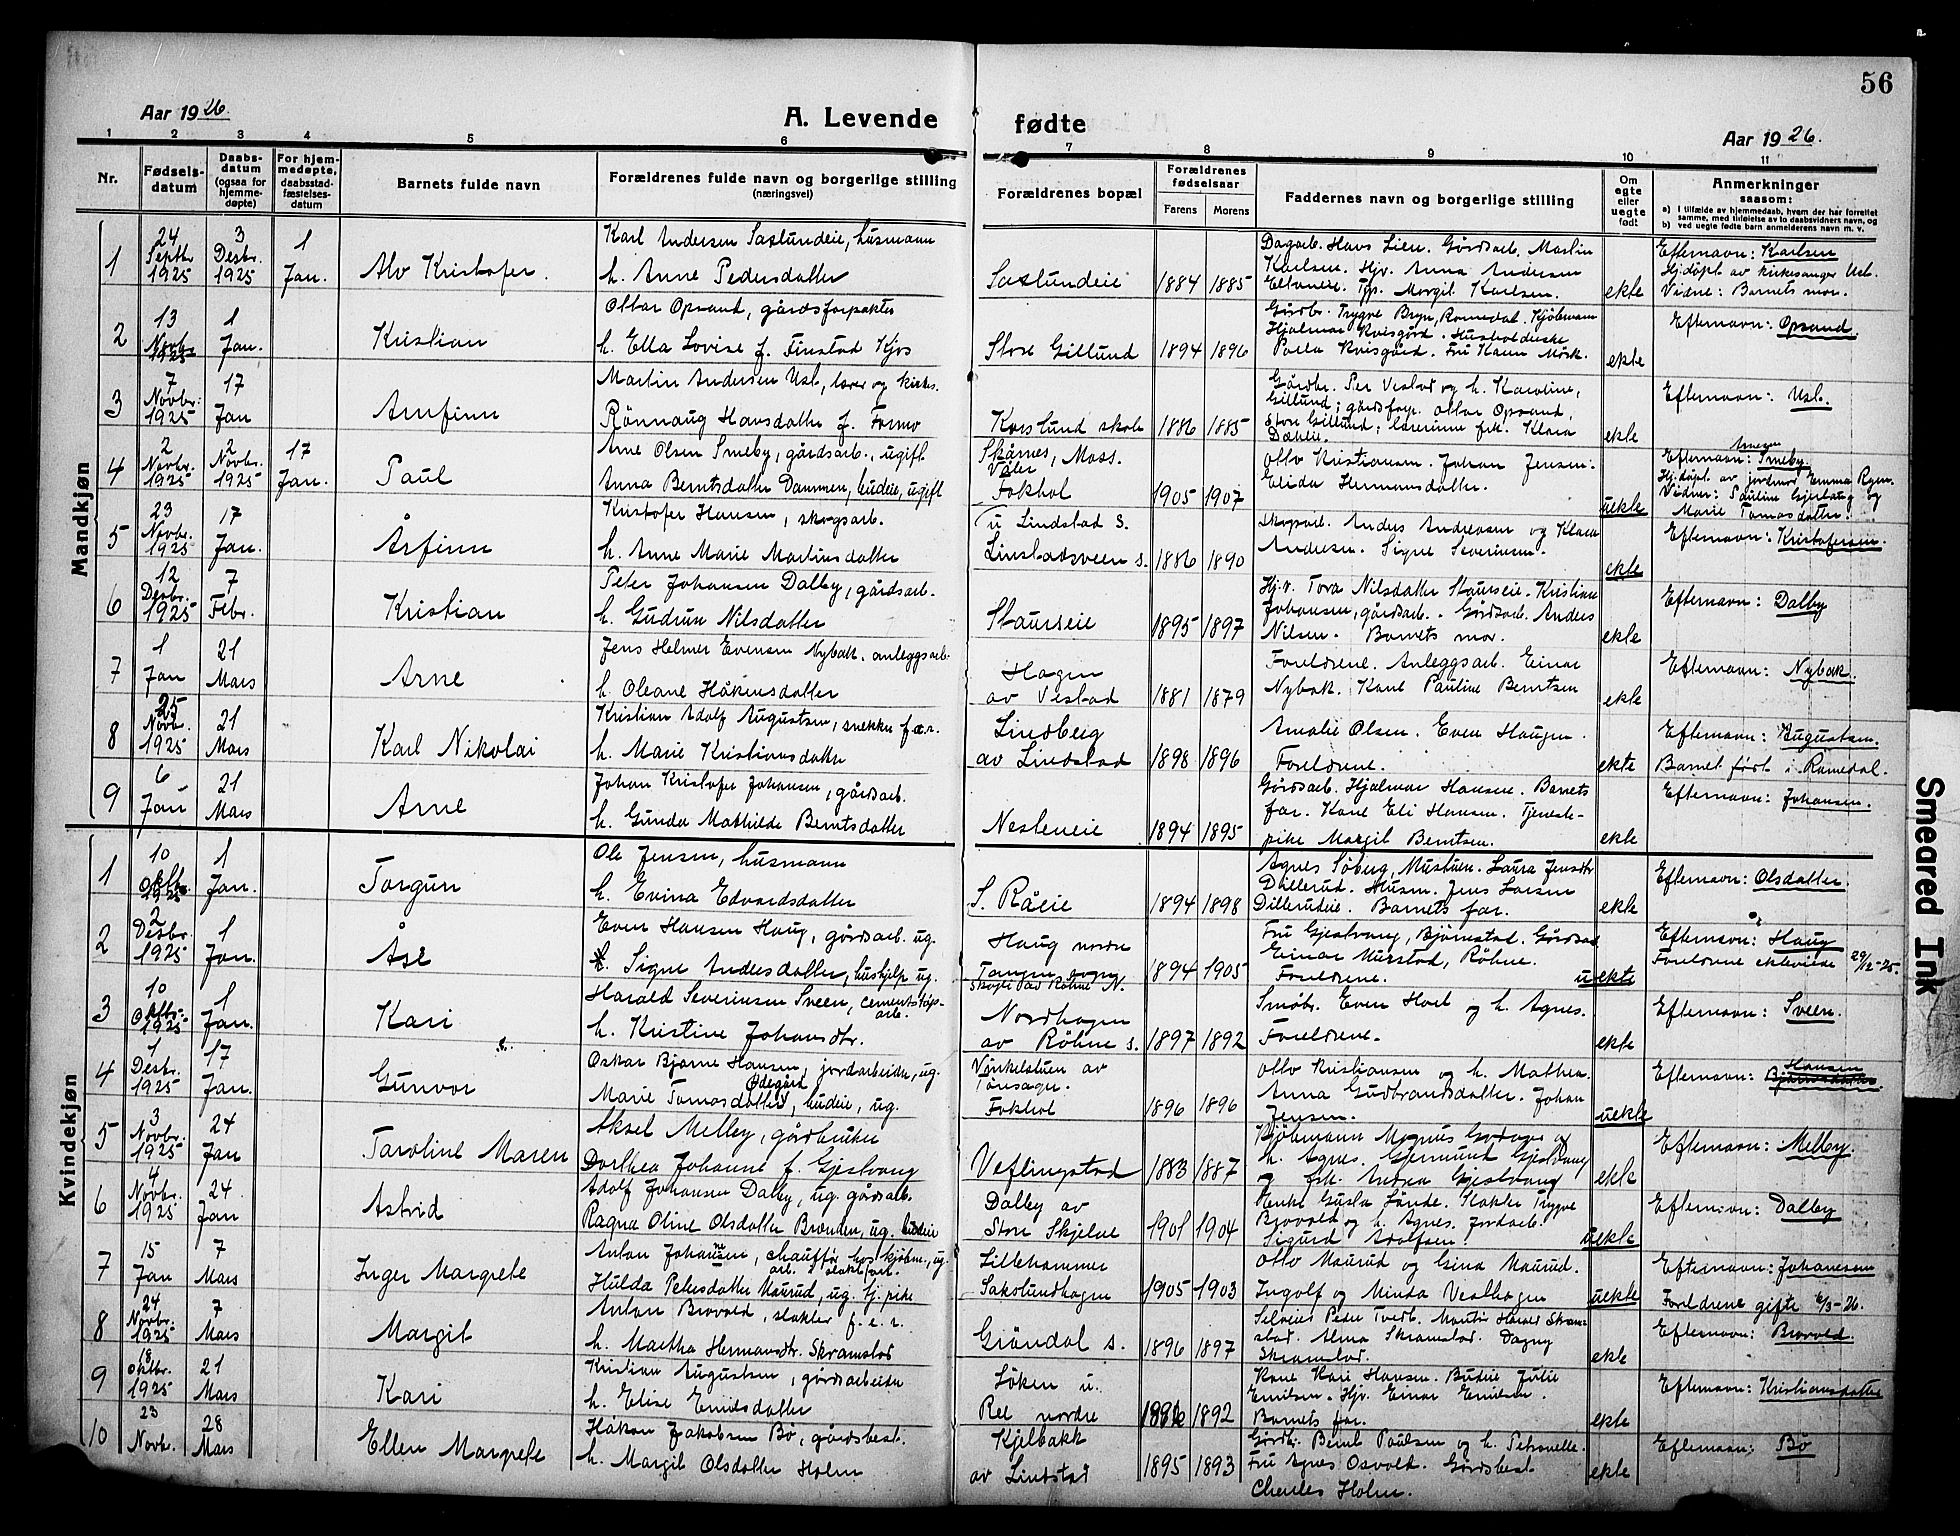 56
Aar 1926.
A. Levende
fødte
Aar 1926.
1 2 3 4 5 6 7 8 9 10 11
Nr.
Fødsels-
datum
Daabs-
datum
(ogsaa for
hjemme-
døpte)
For hjem-
medøpte,
daabsstad-
fæstelses-
datum
Barnets fulde navn
Forældrenes fulde navn og borgerlige stilling
(næringsvei)
Forældrenes bopæl
Forældrenes
fødselsaar
Farens
Morens
Faddernes navn og borgerlige stilling
Om
egte
eller
uegte
født
Anmerkninger
saasom:
a) I tilfælde av hjemmedaab, hvem der har forrettet
samme, med tilføielse av to daabsvidners navn, og
b) ved uegte fødte barn anmelderens navn m. v.
Mandkjøn
1
24 Septbr. 1925
3 Desbr. 1925
1 Jan.
Alv Kristofer.
Karl Andersen Saslundeie, husmann
h. Anne Pedersdatter
Saslundeie
1884 1885
Dagarb. Hans Lien. Gårdsarb. Martin
Karlsen. Hjv. Anna Andersen
Margit Karlsen.
ekte
Efternavn: Karlsen
Hjdøpt av kirkesanger Usl.
Vidne: Barnets mor.
2
13 Novbr. 1925
1 Jan.
Kristian
Ottar Opsand, gårdsforpakter
h. Ella Lovise f. Finstad Kjos
Store Gillund
1894 1896
Gårdbr. Trygve Bryn, Romedal. Kjøbmann
Hjalmar Kvisgård. Husholderske
Paula Kvisgård. Fru Karen Mørk.
ekte
Efternavn: Opsand.
3
7 Novbr. 1925
17 Jan
Arnfinn
Martin Andersen Usl, lærer og kirkes.
Rønnaug Hansdatter f. Formo
Korslund skole
1886 1885
Gårdbr. Per Vestad og h. Karoline,
Gillund; gårdsforp. Ottar Opsand,
Store Gillund; lærerinne frk. Klara
Dæhlie.
ekte
Efternavn: Usl.
4
2 Novbr. 1925
2 Novbr. 1925
17 Jan.
Paul
Arne Olsen Smeby, gårdsarb., ugift
Anna Berntsdatter Dammen, budeie, ugift
Skårnes, Moss.
Våler
Fokhol
1905 1907
Otto Kristiansen. Johan Jensen.
Elida Hermansdatter.
uekte
Arnesen
Efternavn: Smeby.
Hjdøpt av jordmor Emma Ryen.
Vidner: Pauline Gjerlaug og
Marie Tomasdatter.
5
23 Novbr. 1925
17 Jan.
Årfinn
Kristofer Hansen, skogsarb.
h. Anne Marie Martinsdatter
u Lindstad S.
Linstadsveen s.
1886 1890
Skogsarb. Anders Andreasen og Klara
Andersen. Signe Severinsen.
ekte
Efternavn: Kristofersen.
6
12 Desbr. 1925
7 Febr.
Kristian
Peter Johansen Dalby, gårdsarb.
h. Gudrun Nilsdatter
Staurseie
1895 1897
Hjv. Tora Nilsdatter Staurseie. Kristian
Johansen, gårdsarb. Gårdsarb. Anders
Nilsen. Barnets mor.
ekte
Efternavn: Dalby
7
1 Jan
21 Mars
Arne
Jens Helmer Evensen Nybak. anleggsarb.
h. Oleane Håkensdatter
Hagen
av Vestad
1881 1879
Foreldrene. Anleggsarb. Einar
Nybak. Kone Pauline Berntsen
ekte
Efternavn: Nybak.
8
25 Novbr. 1925
21 Mars
Karl Nikolai
Kristian Adolf Augustsen, snekker f.e.r.
h. Marie Kristiansdatter
Lindberg
av Lindstad
1898 1896
Amalie Olsen. Even Haugen.
Foreldrene.
ekte
Efternavn: Augustsen.
Barnet født i Romedal.
9
6 Jan
21 Mars
Arne
Johan Kristofer Johansen, gårdsarb.
h. Gunda Mathilde Berntsdatter
Nesteneie
1894 1895
Gårdsarb. Hjalmar Hansen. Barnets
far. Kone Eli Hansen. Tjeneste-
pike Margit Berntsen.
ekte
Efternavn: Johansen.
Kvindekjøn
1
10 Oktbr. 1925
1 Jan.
Torgun
Ole Jensen, husmann
h. Evina Edvardsdatter
S. Råeie
1894 1898
Agnes Søberg, Laura Jensdtr
Dillerud. Husm. Jens Larsen
Dillerudeie. Barnets far.
ekte
Efternavn: Olsdatter.
2
2 Desbr. 1925
1 Jan.
Åse
Even Hansen Haug, gårdsarb. ug.
Signe Andersdatter, hushjelp ug.
Haug nordre
Tangen
1894 1905
Fru Gjestvang, Bjørnstad. Gårdsarb
Einar Murstad, Røhne.
Foreldrene.
uekte
Efternavn: Haug
Foreldrene ekteviede 29/12-25.
3
10 Oktbr. 1925
1 Jan.
Kari
Harald Severinsen Sveen, cementstøp.
arb.
h. Kristine Johansdtr.
Nordhagen
av Røhne s.
1897 1892
Småbr. Even Hoel og h. Agnes.
Foreldrene.
ekte
Efternavn: Sveen.
4
1 Desbr. 1925
17 Jan.
Gunvor
Oskar Bjarne Hansen, jordarbeider, ug.
Ødegård
Marie Tomasdatter, budeie, ug.
Vinkelstuen av
Tønsager.
Fokhol
1896 1896
Otto Kristiansen og h. Mathea.
Anna Gudbrandsdatter. Johan
Jensen.
uekte
Hansen
Efternavn: Bjarnesdatter
5
3 Novbr. 1925
24 Jan
Taroline Maren
Aksel Melby, gårdbruker
Dorthea Johanne f. Gjestvang
Veflingstad
1883 1887
Kjøbmann Magnus
h. Agnes. Gjermund Gjestvang
og frk. Andrea Gjestvang
ekte
Efternavn: Melby.
6
4 Novbr. 1925
24. Jan
Astrid
Adolf Johansen Dalby, ug. gårdsarb.
Ragna Oline Olsdatter Brenden, ug. budeie
Dalby av
Store Skjelve
1901 1904
Enke Gusta Sånde. Slakter Trygve
Brovold og h. Agnes. Jordarb.
Sigurd Adolfsen.
uekte
Efternavn: Dalby
7
15 Jan
7 Mars
Inger Margrete
Anton Johansen, chauffør hos kjøbm., ug.
Hulda Petersdatter Maurud, ug. tj. pike
Lillehammer
Sakslundhagen
1905 1903
Otto Maurud og Gina Maurud.
Ingolf og Minda Vesthagen
uekte
Efternavn: Johanesen
Foreldrene gifte 6/3-26.
8
24 Novbr. 1925
7 Mars
Margit
Anton Brovold, slakter f.e.r.
h. Martha Hermansdtr. Skramstad
Grøndal s.
1896 1897
Peder Harald Skram-
stad. Alma Skramstad. Dagny
Skramstad.
ekte
Efternavn: Brovold.
9
18 Oktbr. 1925
21 Mars
Kari
Kristian Augustsen, gårdsarbeider
h. Elise Emilsdatter
Løken u.
Ree nordre
1892
Kone Kari Hansen. Budeie Julie
Emilsen. Hjv. Einar Emilsen.
Barnets far.
ekte
Efternavn: Kristiansdatter
10
23 Novbr.
28 Mars
Ellen Margrete
Håkon Jakobsen Bø, gårdsbest.
h. Margit Olsdatter Holm
Kjelbakk
av Lindstad
1895 1893
Gårdbr. Bernt Paulsen og h. Petronelle.
Fru Agnes Osvold. Gårdsbest
Charles Holm.
ekte
Efternavn: Bø
Smeared Ink